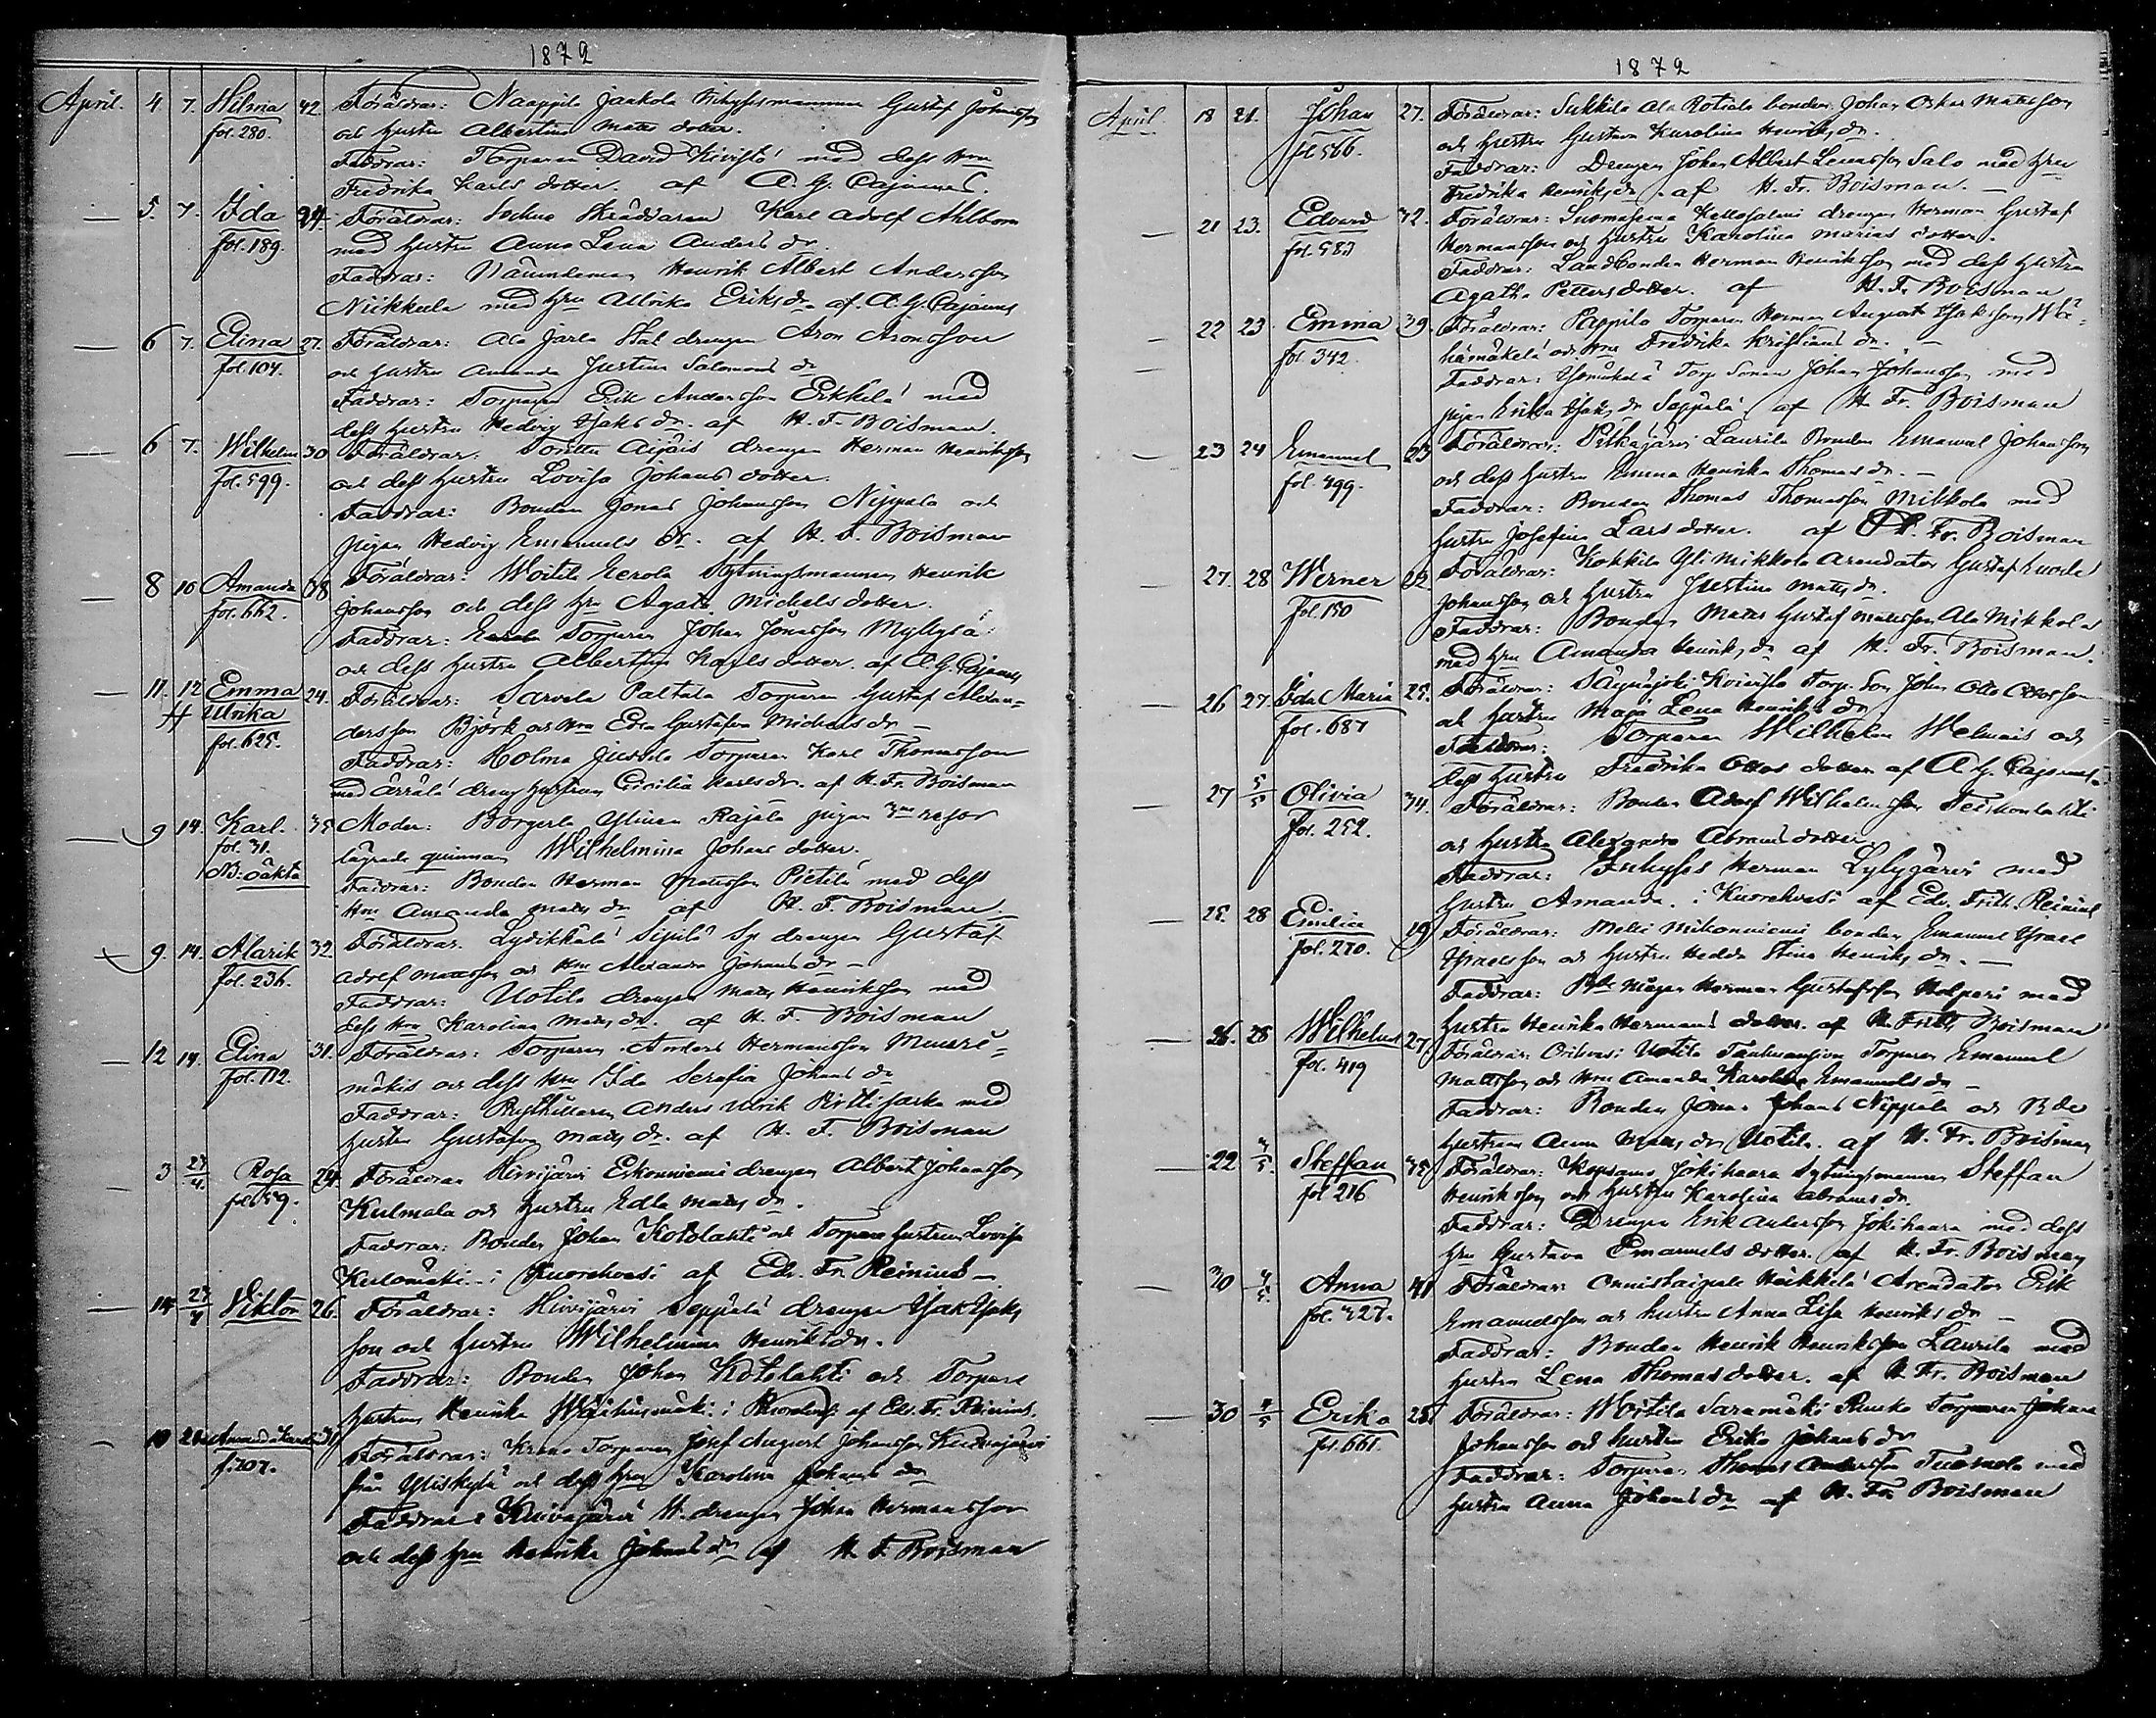 1872
April. 4. 7. Hilma 42. Föräldrar: Naappila Jaakola Inhysesmannen Gustaf Johansson
fol. 280. och hustru Albertina Mats dotter.
Faddrar: Torparen David Kivistö med dess Hru
Fredrika Karls dotter. af A. G. Cajanus.
— 5. 7. Ida 24. Föräldrar: Sockne Skräddaren Karl Adolf Ahlbom
fol. 189. med hustru Anna Lena Anders dr.
Faddrar: Nämndeman Henrik Albert Andersson
Niikkula med Hru Ulrika Eriks dr af A. G. Cajanus
— 6 7. Elina 27. Föräldrar: Ala Jarla drengen Aron Aronsson
fol 104. och hustru Amanda Justina Salomons dr
Faddrar: Torparen Erik Andersson Erkkilä med
dess hustru Hedvig Isaks dr. af H. F. Boisman.
— 6 7. Wilhelm 30 Föräldrar: drengen Herman Henriksson
fol. 599. och dess hustru Lovisa Johans dotter.
Faddrar: Bonden Jonas Johansson Nippala och
pigan Hedvig Emanuels dr. af H. F. Boisman
— 8 10 Amanda 38 Föräldrar: Woitila Eerola Sytningsmannen Henrik
fol. 662. Johansson och dess Hru Agata Michels dotter.
Faddrar: Torparen Johan Jonasson Myllysä
och dess hustru Albertina Karls dotter. af A. G. Cajanus
— 11. 12 Emma 24. Föräldrar: Sarvela Paltala Torparen Gustaf Alexan-
Ulrika
fol. 625. dersson Björk och Hru Eva Gustafva Michels dr —
Faddrar: Holma Jussila Torparen Karl Thomasson
med Ärrälä dreng hustrun Cicilia Karls dr. af H. Fr. Boisman
— 9 14. Karl. 35 Moder: Yliнen Rajala pigan 3ne resor
fol. 31.
NB: oäkta lägrade qvinnan Wilhelmina Johans dotter.
Faddrar: Bonden Herman Mattsson Pietilä med dess
Hru Amanda Mats dr af H. F. Boisman
— 9. 14. Alarik 32. Föräldrar. Lydikkälä Sipilä drengen Gustaf
fol. 236. Adolf Mattsson och Hru Alexandra Johans dr —
Faddrar: Uotila drengen Mats Henriksson med
dess Hru Karolina Mats dr. af H. F. Boisman
— 12 14. Elina 31. Föräldrar: Torparen Anders Hermansson
fol. 112. mäkis och dess Hru Ida Serafia Johans dr
Faddrar: Anders Ulrik med
hustru Gustafva Mats dr. af H. F. Boisman
— 3 27/4. Rosa 24. Föräldrar Hirvijärvi Eskonniemi drengen Albert Johansson
fol. 59. Kulmala och hustru Edla Mats dr.
Faddrar: Bonden Johan Kotolahti och Torpare hustrun Lovisa
Kulomäki i Kuorehvesi af Edv. Fr. Reinius —
— 14 27/4 Viktor 26. Föräldrar: Hirvijärvi Seppälä drengen Isak Isaks
son och hustru Wilhelmina Henriks dr.
Faddrar: Bonden Johan Kotolahti och Torpare
hustrun Henrika i Kuorehvesi af Edv. Fr. Reinius.
— 10 28 Amanda Karolina 31 Föräldrar: Torparen Josef August Johansson
f. 107. från Yliskylä och dess Hru Karolina Johans dr
Faddrar: drengen Johan Hermansson
och dess Hru Henrika Johans dr af H. F. Boisman
1872
April. 18 21. Johan 27. Föräldrar: Sukkila Ala Rotiala bonden Johan Oskar Mattsson
fol 566. och hustru Gustava Karolina Henriks dr.
Faddrar: Drengen Johan Albert Salo med Hru
Fredrika Henriks dr. af H. Fr. Boisman. —
— 21 23. Edvard 32. Föräldrar: Suomasema Kellosalmi drengen Herman Gustaf
fol. 583 Hermansson och hustru Karolina Marias dotter.
Faddrar: Landbonden Herman Henriksson med dess hustru
Agatha Petters dotter. af H. Fr. Boisman
— 22 23. Emma 39. Föräldrar: Pappila Torparen Herman August Isaksson
fol. 342. och Hru Fredrika Kristians dr. —
Faddrar: Torp. Sonen Johan Johansson med
pigan Erika Isaks dr Seppälä. af H. Fr. Boisman
— 23 24 Emanuel 23 Föräldrar: Pitkäjärvi Laurila Bonden Emanuel Johansson
fol. 499. och dess hustru Emma Henrika Thomas dr. —
Faddrar: Bonden Thomas Thomasson Mikkola med
hustru Josefina Lars dotter. af H. Fr. Boisman
— 27. 28 Werner 22 Föräldrar: Kokkila Yli Mikkola Arendator Gustaf
fol. 150 Johansson och hustru Justina Mats dr.
Faddrar: Bonden Mats Gustaf Mattsson Ala Mikkola
med Hru Amanda Henriks dr af H. Fr. Boisman.
— 26 27. Ida Maria 25. Föräldrar: Säynäjoki Koivisto Torp. Son Johan Otto Ottosson
fol. 687 och hustru Maja Lena Henriks dr
Faddrar: Torparen Wilhelm Welmais och
dess hustru Fredrika Ottos dotter af A. G. Cajanus.
— 27 5/5 Olivia 34. Föräldrar: Bonden Adolf Wilhelmsson
fol. 252. och hustru Alexandra Abrams dotter.
Faddrar: Inhyses Herman Lylyjärvi med
hustru Amanda. i Kuorehvesi af Edv. Frith. Reinius
— 25 28 Emilia 19 Föräldrar: bonden Emanuel Israel
fol. 270. Israelsson och hustru Hedda Stina Henriks dr. —
Faddrar: Herman Gustafsson Holperi med
hustru Henrika Hermans dotter. af H. Frith Boisman
— 26. 28 Wilhelm 27. Föräldrar: Orihvesi Uotila Torparen Emanuel
fol. 419 Mattsson och Hru Amanda Karolina Emanuels dr —
Faddrar: Bonden Jonas Johans Nippala och Bde
hustrun Anna Mats dr Uotila. af H. Fr. Boisman
— 22 4/5. Steffan 35 Föräldrar: Kopsamo Jokihaara Sytningsmannen Steffan
fol 216 Henriksson och hustru Karolina Abrams dr.
Faddrar: Drengen Erik Andersson Jokihaara med dess
Hru Gustava Emanuels dotter. af H. Fr. Boisman
— 30 4/5. Anna 41 Föräldrar: Onnistaipale Heikkilä Arendator Erik
fol. 327. Emanuelsson och hustru Anna Lisa Henriks dr —
Faddrar: Bonden Henrik Henriksson Laurila med
hustru Lena Thomas dotter. af H. Fr. Boisman
— 30 4/5 Erika 25 Föräldrar: Woitila Saramäki Torparen Johan
fol. 661. Johansson och hustru Erika Johans dr
Faddrar: Torparen Thomas Andersson Tuomola med
hustru Anna Johans dr af H. Fr. Boisman